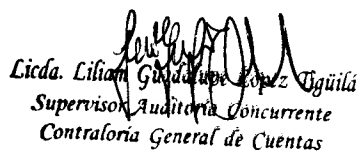 Licda. Lilian Guadalupe López Tigüilá
Supervisor Auditoría Concurrente
Contraloría General de Cuentas